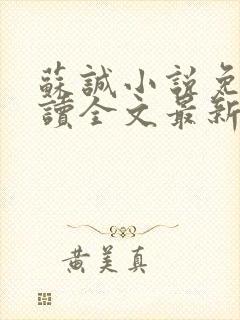 蘇誠小說免
讀全文最新
黃美真